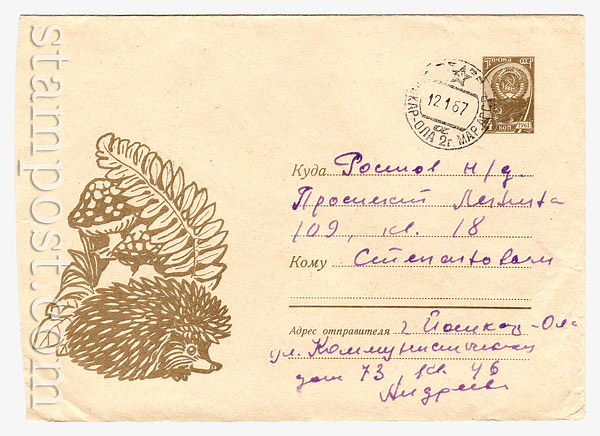 stampost.com
Почта СССР
4 коп. 1961
ЙОШКАР-ОЛА 2 МАР АССР
12 1 67
Куда Ростов н/д.
Проспект Ленина
109, кв. 18
Кому Степановым
Адрес отправителя г Йошкар-Ола
ул. Коммунистическая
дом 73 кв 46
Андреев